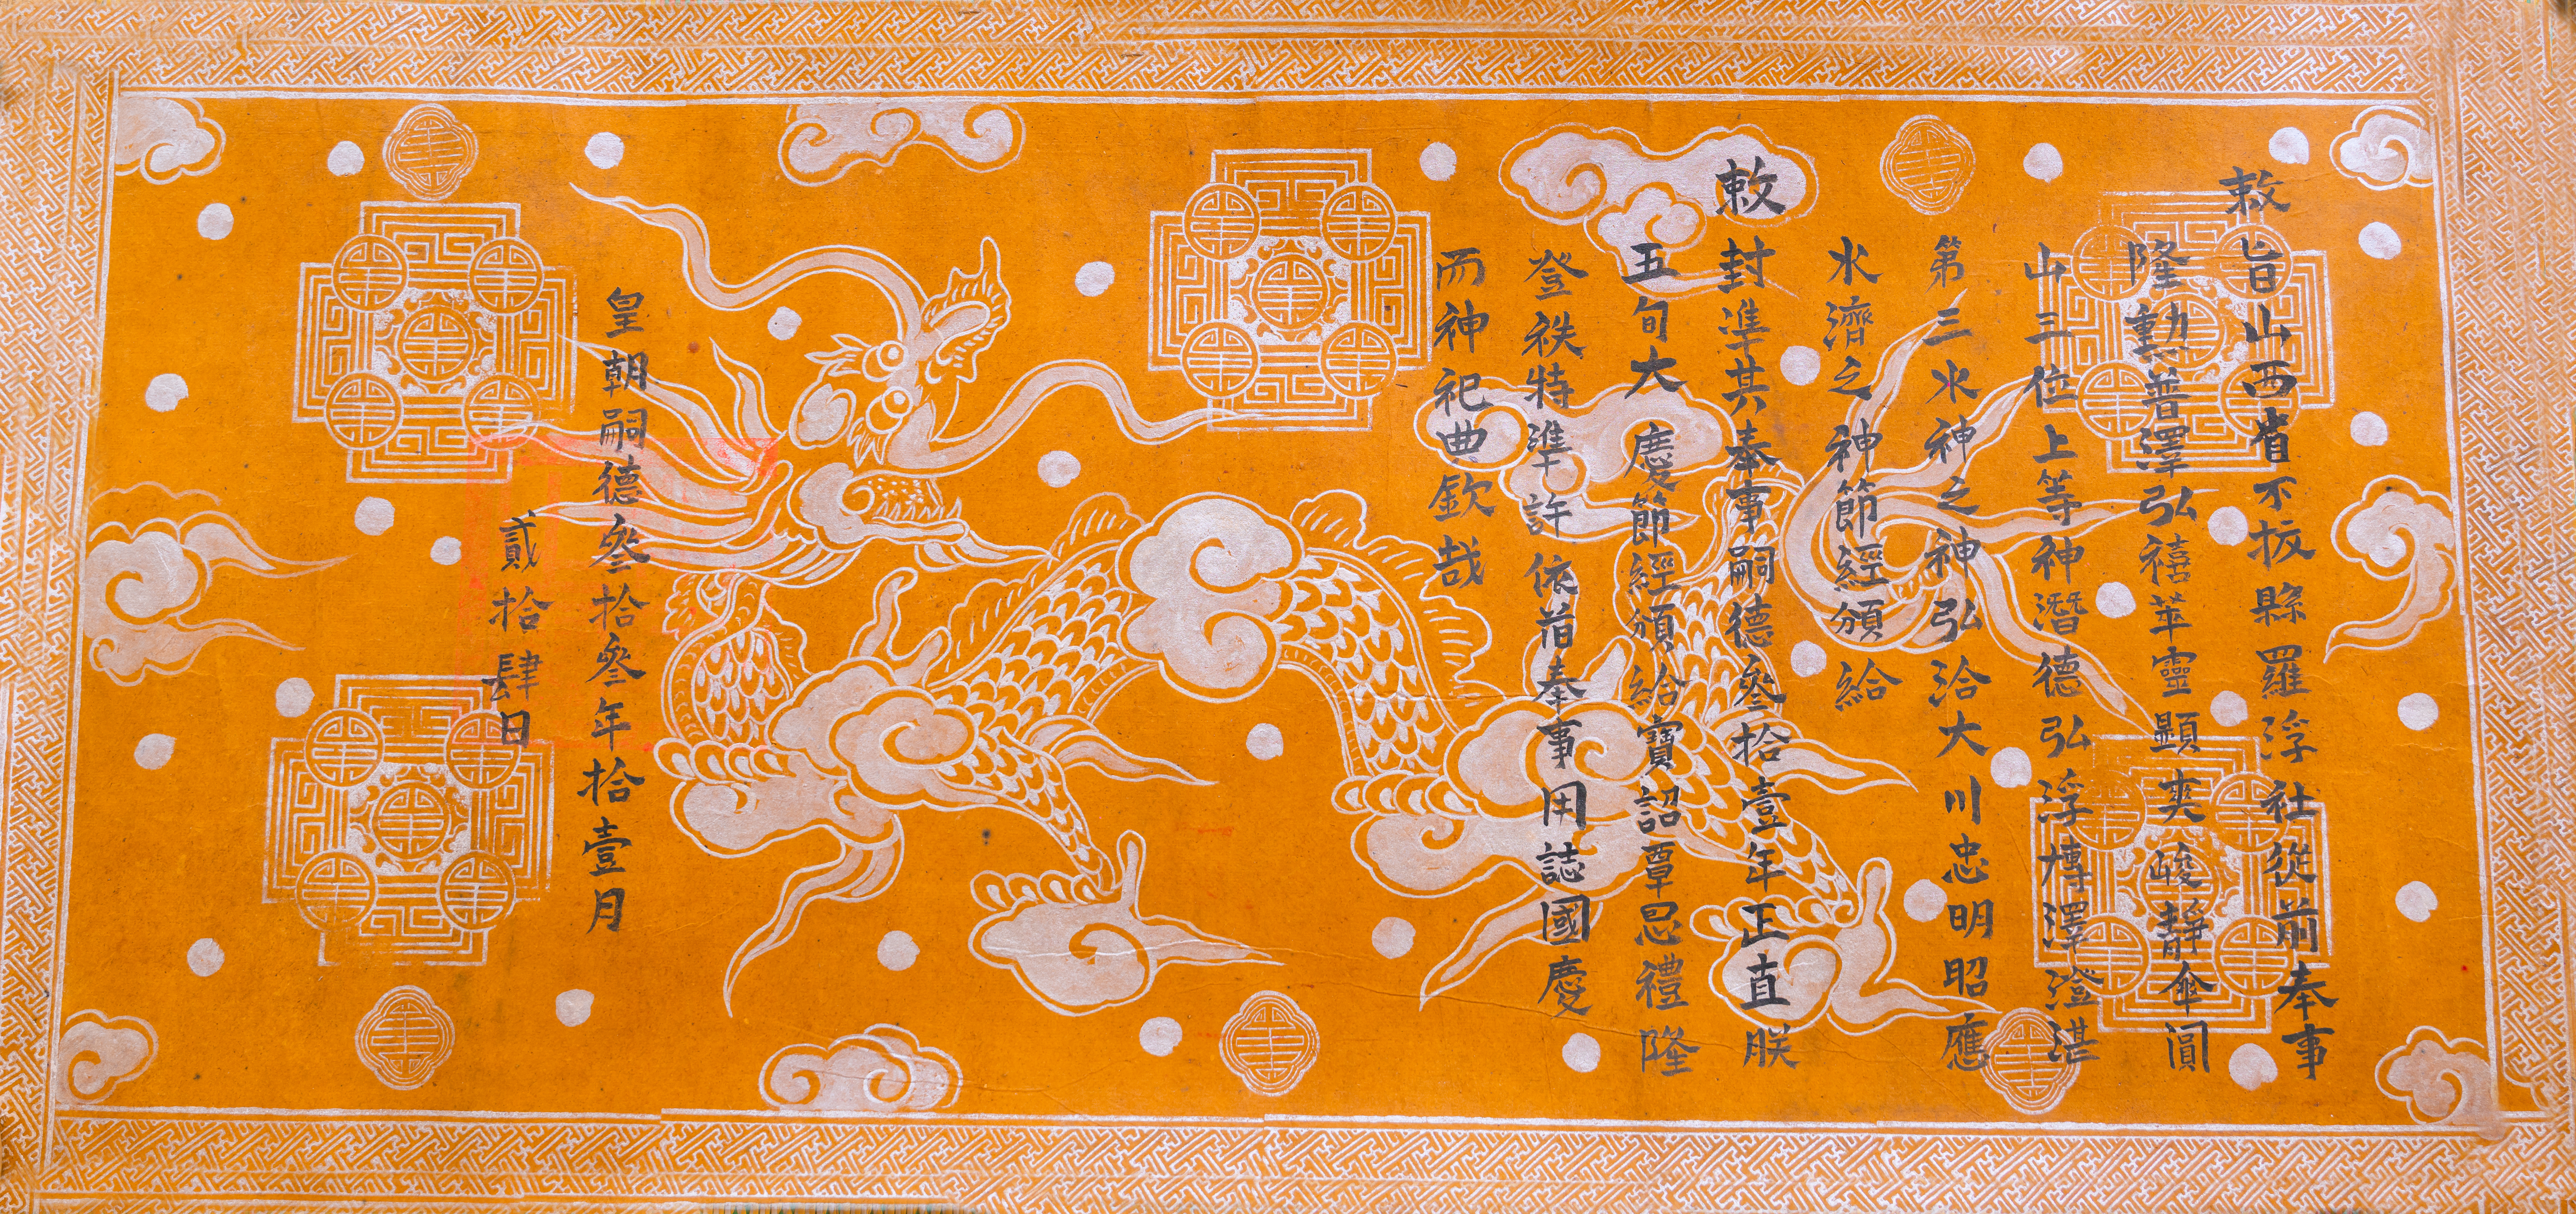 敕旨山西省不拔縣羅浮社從前奉事
隆勳普澤弘禧苹靈顯奕峻靜傘圓
山三位上等神潛德弘浮慱澤澄湛
第三水神之神弘洽大川忠明昭應
水濟之神節經頒給
敕封準其奉事嗣德叄拾壹年正直朕
五旬大慶節經頒給寶詔覃恩禮隆
登秩特準許依前奉事用誌國慶
而神祀典欽哉
皇朝嗣德叄拾叄年拾壹月
貳拾肆日